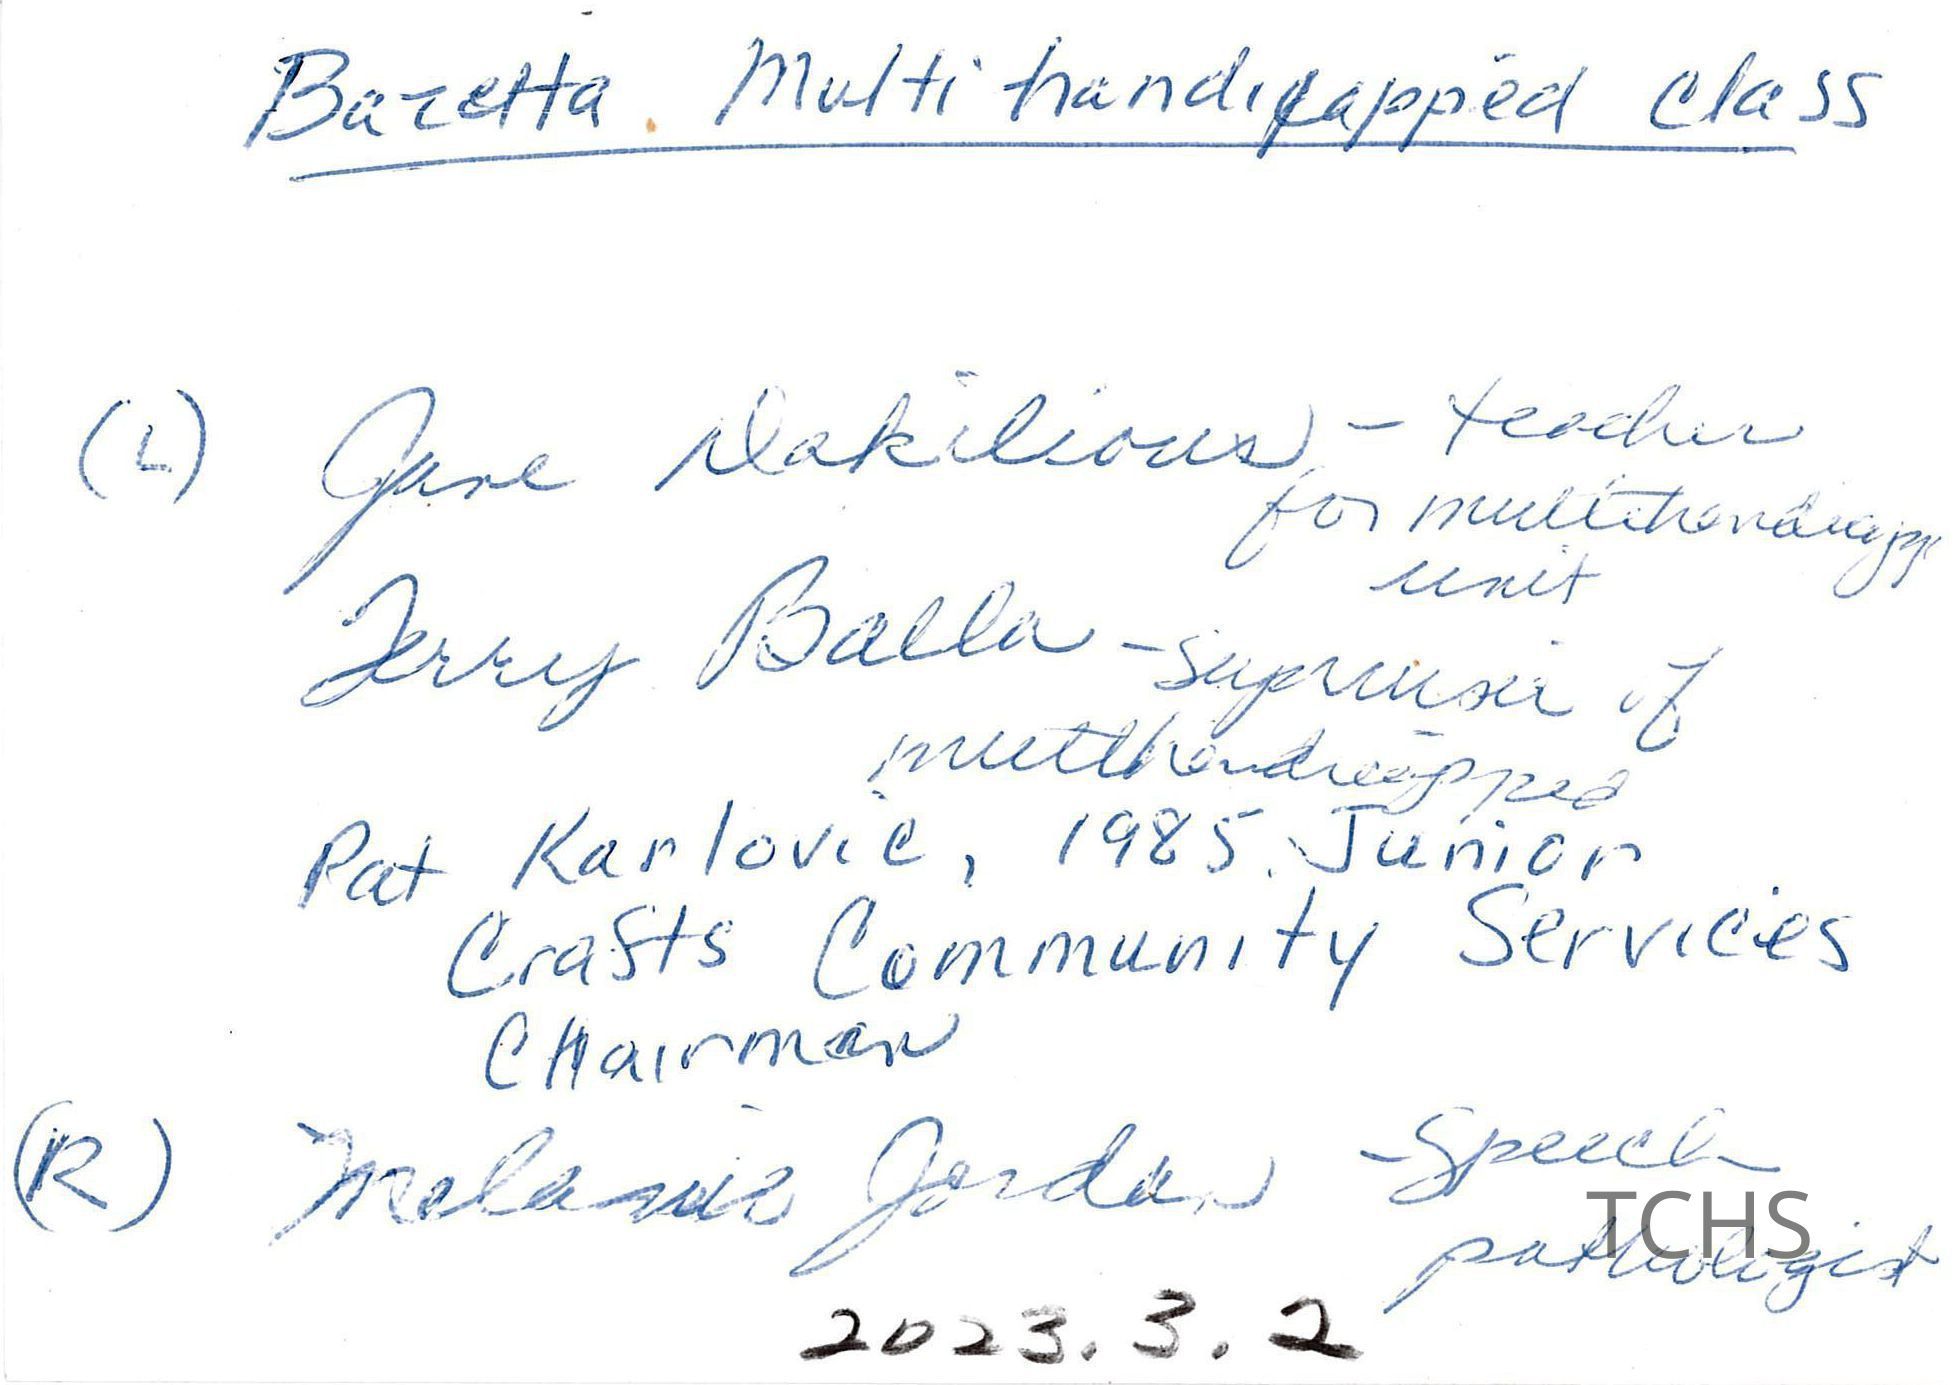 Bazetta Multi handicapped class
(L) Jane Nakilious - teacher
for multihandicapp
unit
Terry Balla - supervisor of
multihandicapped
Pat Karlovic, 1985 Junior
Crafts Community Services
Chairman
(R) Melanie Jordan - Speech
pathologist
TCHS
2023.3.2